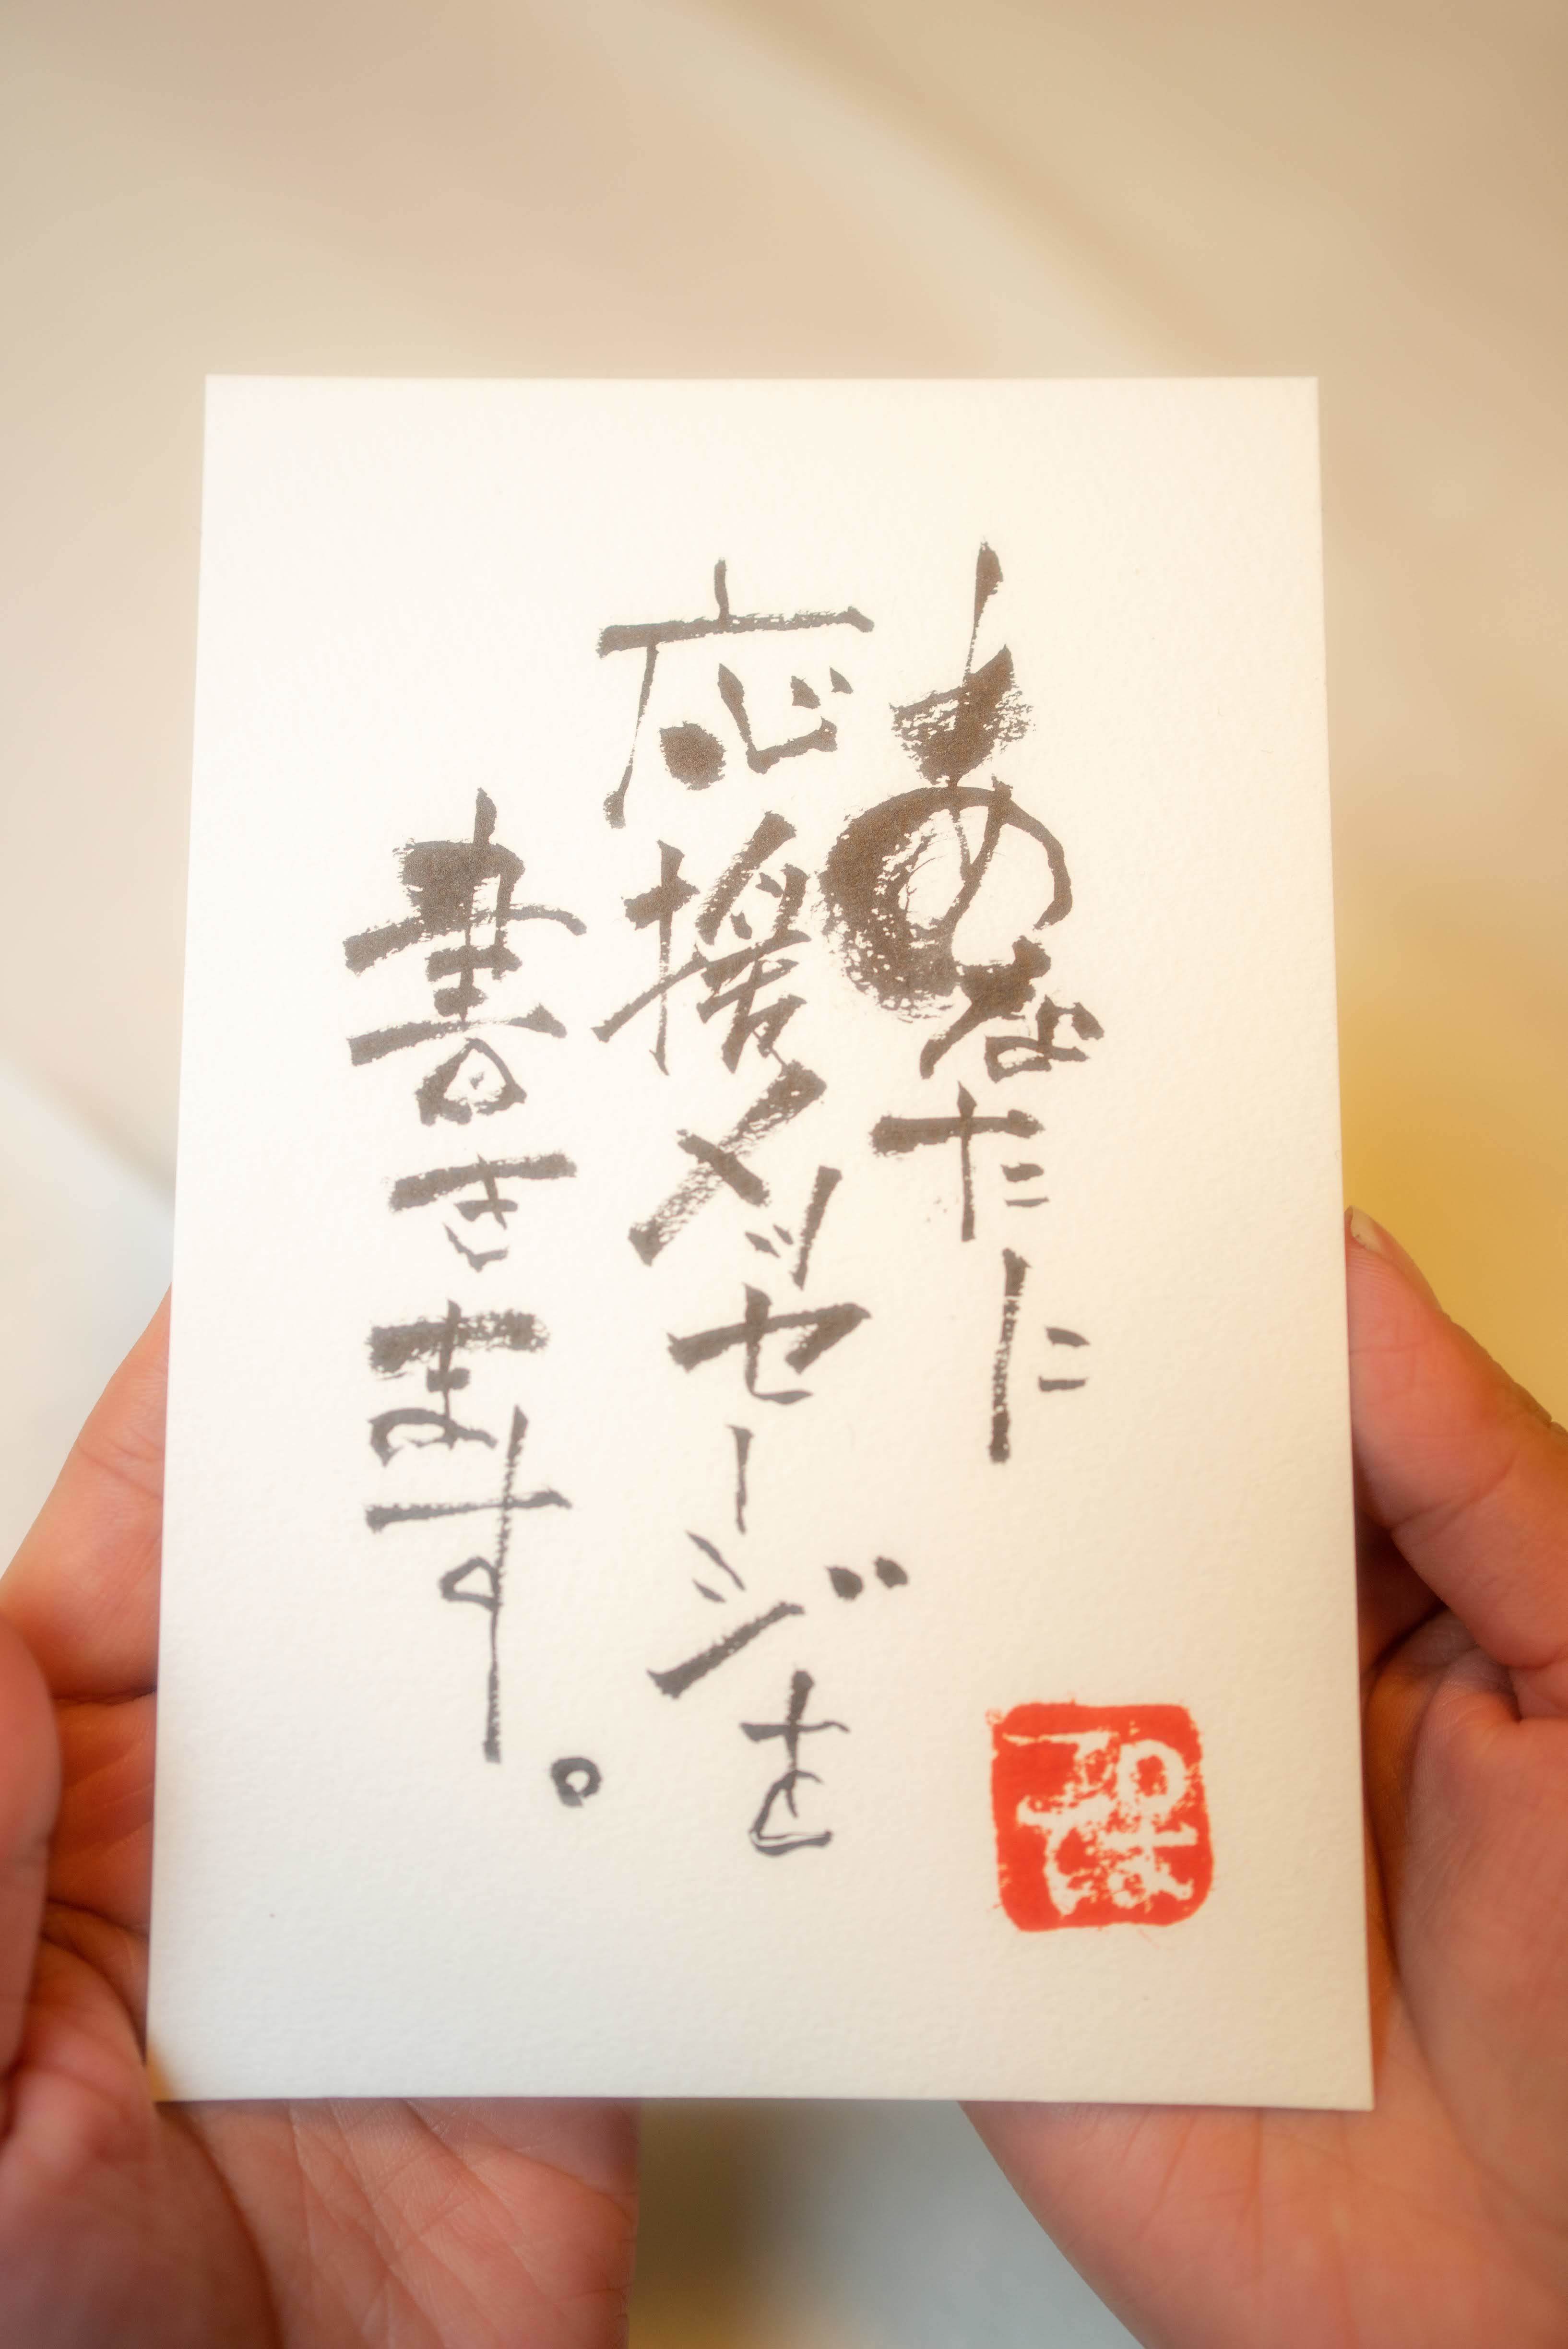 あなたに
応援メッセージを
書きます。